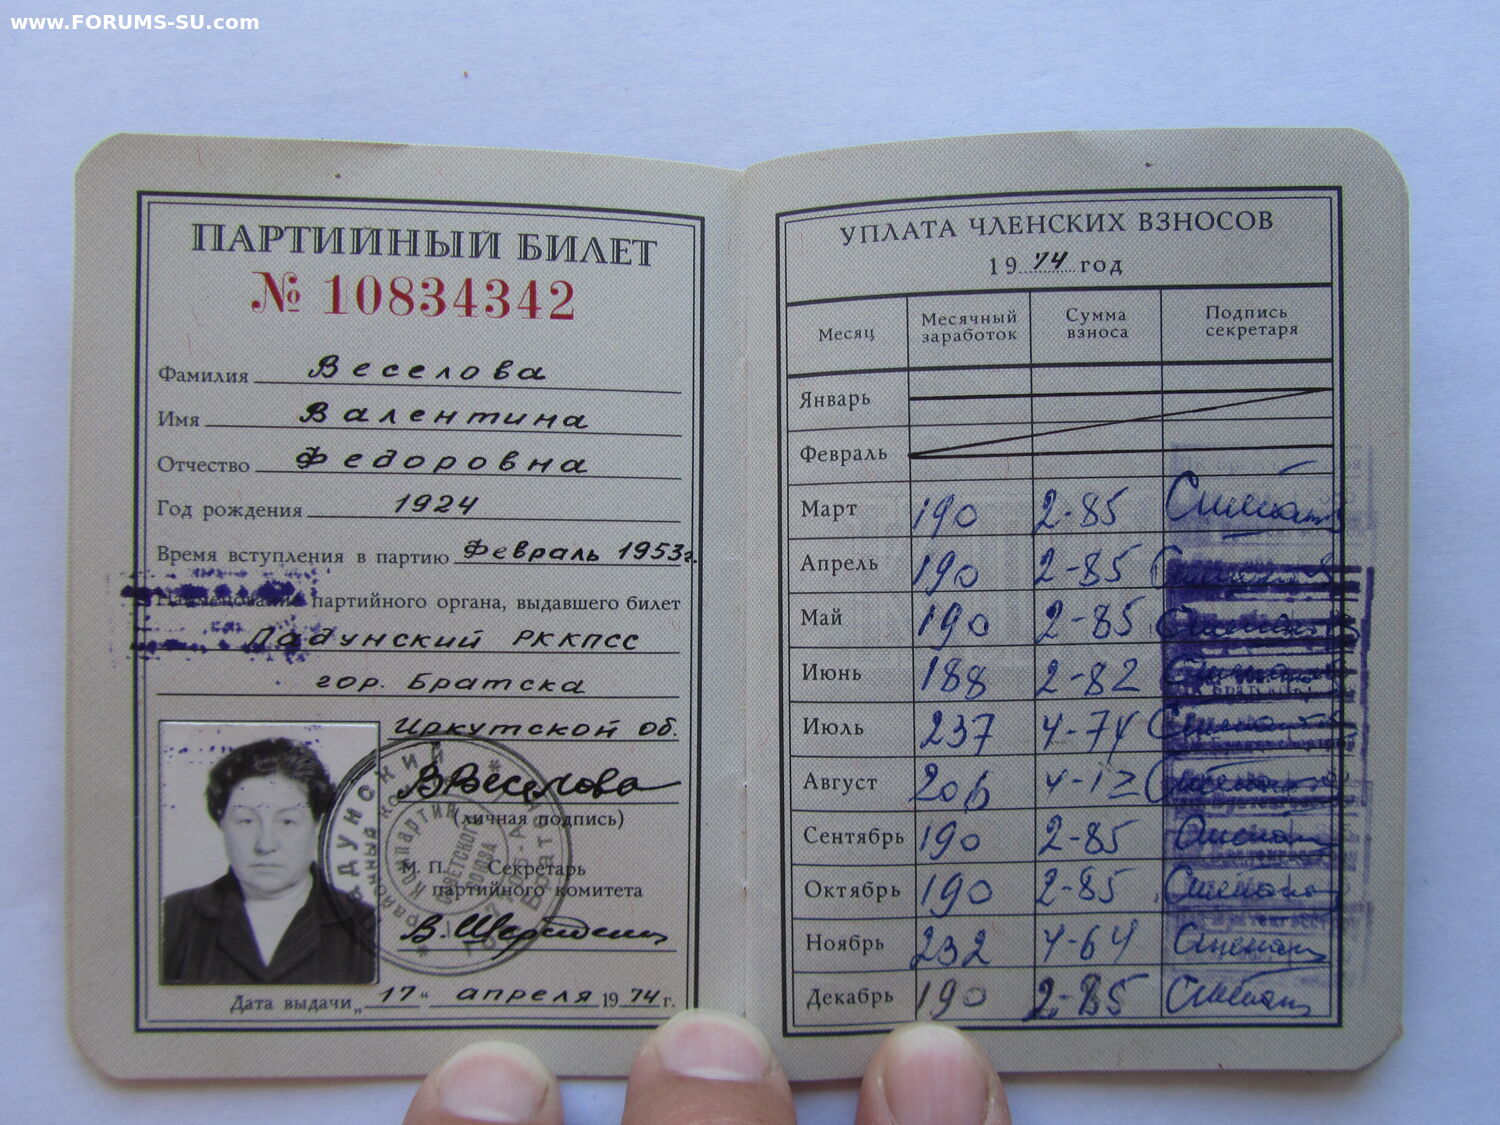 www.FORUMS-SU.com
ПАРТИЙНЫЙ БИЛЕТ
№ 10834342
Фамилия Веселова
Имя Валентина
Отчество Федоровна
Год рождения 1924
Время вступления в партию февраль 1953г.
Наименование партийного органа, выдавшего билет
Падунский РККПСС
гор. Братска
Иркутской об.
В Веселова
(личная подпись)
М. П. Секретарь
партийного комитета
Дата выдачи „17“ апреля 1974 г.
УПЛАТА ЧЛЕНСКИХ ВЗНОСОВ
1974 год
Месяц Месячный заработок Сумма взноса Подпись секретаря
Январь
Февраль
Март 190 2-85
Апрель 190 2-85
Май 190 2-85
Июнь 188 2-82
Июль 237 4-74
Август 206 4-12
Сентябрь 190 2-85
Октябрь 190 2-85
Ноябрь 232 4-64
Декабрь 190 2-85